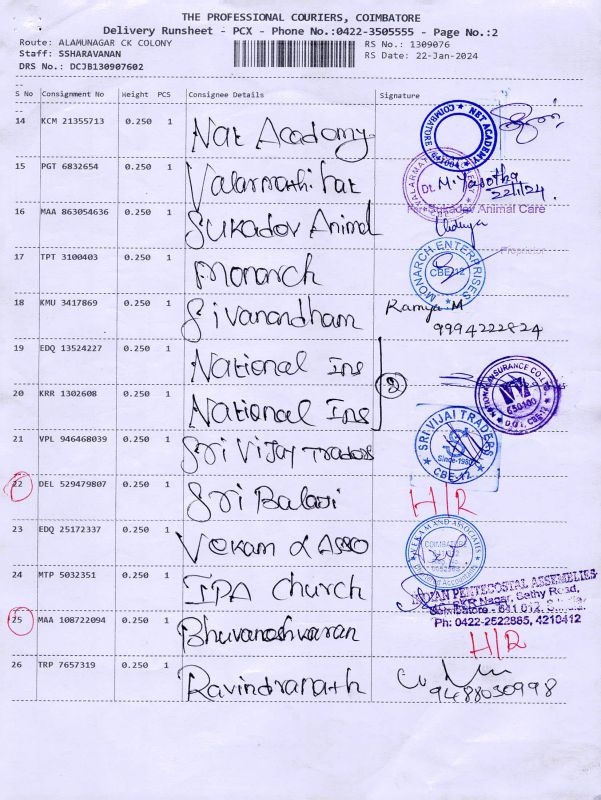 THE PROFESSIONAL COURIERS, COIMBATORE
Delivery Runsheet - PCX - Phone No.:0422-3505555 - Page No.:2
Route: ALAMUNAGAR CK COLONY RS No.: 1309076
Staff: SSHARAVANAN RS Date: 22-Jan-2024
DRS No.: DCJB130907602
S No Consignment No Weight PCS Consignee Details Signature
14 KCM 21355713 0.250 1 Nat Academy NET ACADEMY COIMBATORE
15 PGT 6832654 0.250 1 Dr. M. Yasotha
22/1/24.
16 MAA 863054636 0.250 1 Sukadev Animal For Sukadev Animal Care
Proprietor
17 TPT 3100403 0.250 1 Monarch MONARCH ENTERPRISES CBE-12
18 KMU 3417869 0.250 1 Sivanandham Ramya M
9994222824
19 EDQ 13524227 0.250 1 National Ins
20 KRR 1302608 0.250 1 National Ins 2 650100
21 VPL 946468039 0.250 1 Sri Vijay Traders SRI VIJAI TRADERS Since-1980 CBE-12.
22 DEL 529479807 0.250 1 Sri Balaji H/R
23 EDQ 25172337 0.250 1 Vekam & Asso COIMBATORE
24 MTP 5032351 0.250 1 IPA Church INDIAN PENTECOSTAL ASSEMBLIES
SKR Nagar, Sathy Road,
Coimbatore - 641 012.
Ph: 0422-2522885, 4210412
25 MAA 108722094 0.250 1 Bhuvaneshwaran H/R
26 TRP 7657319 0.250 1 Ravindranath 9488030998